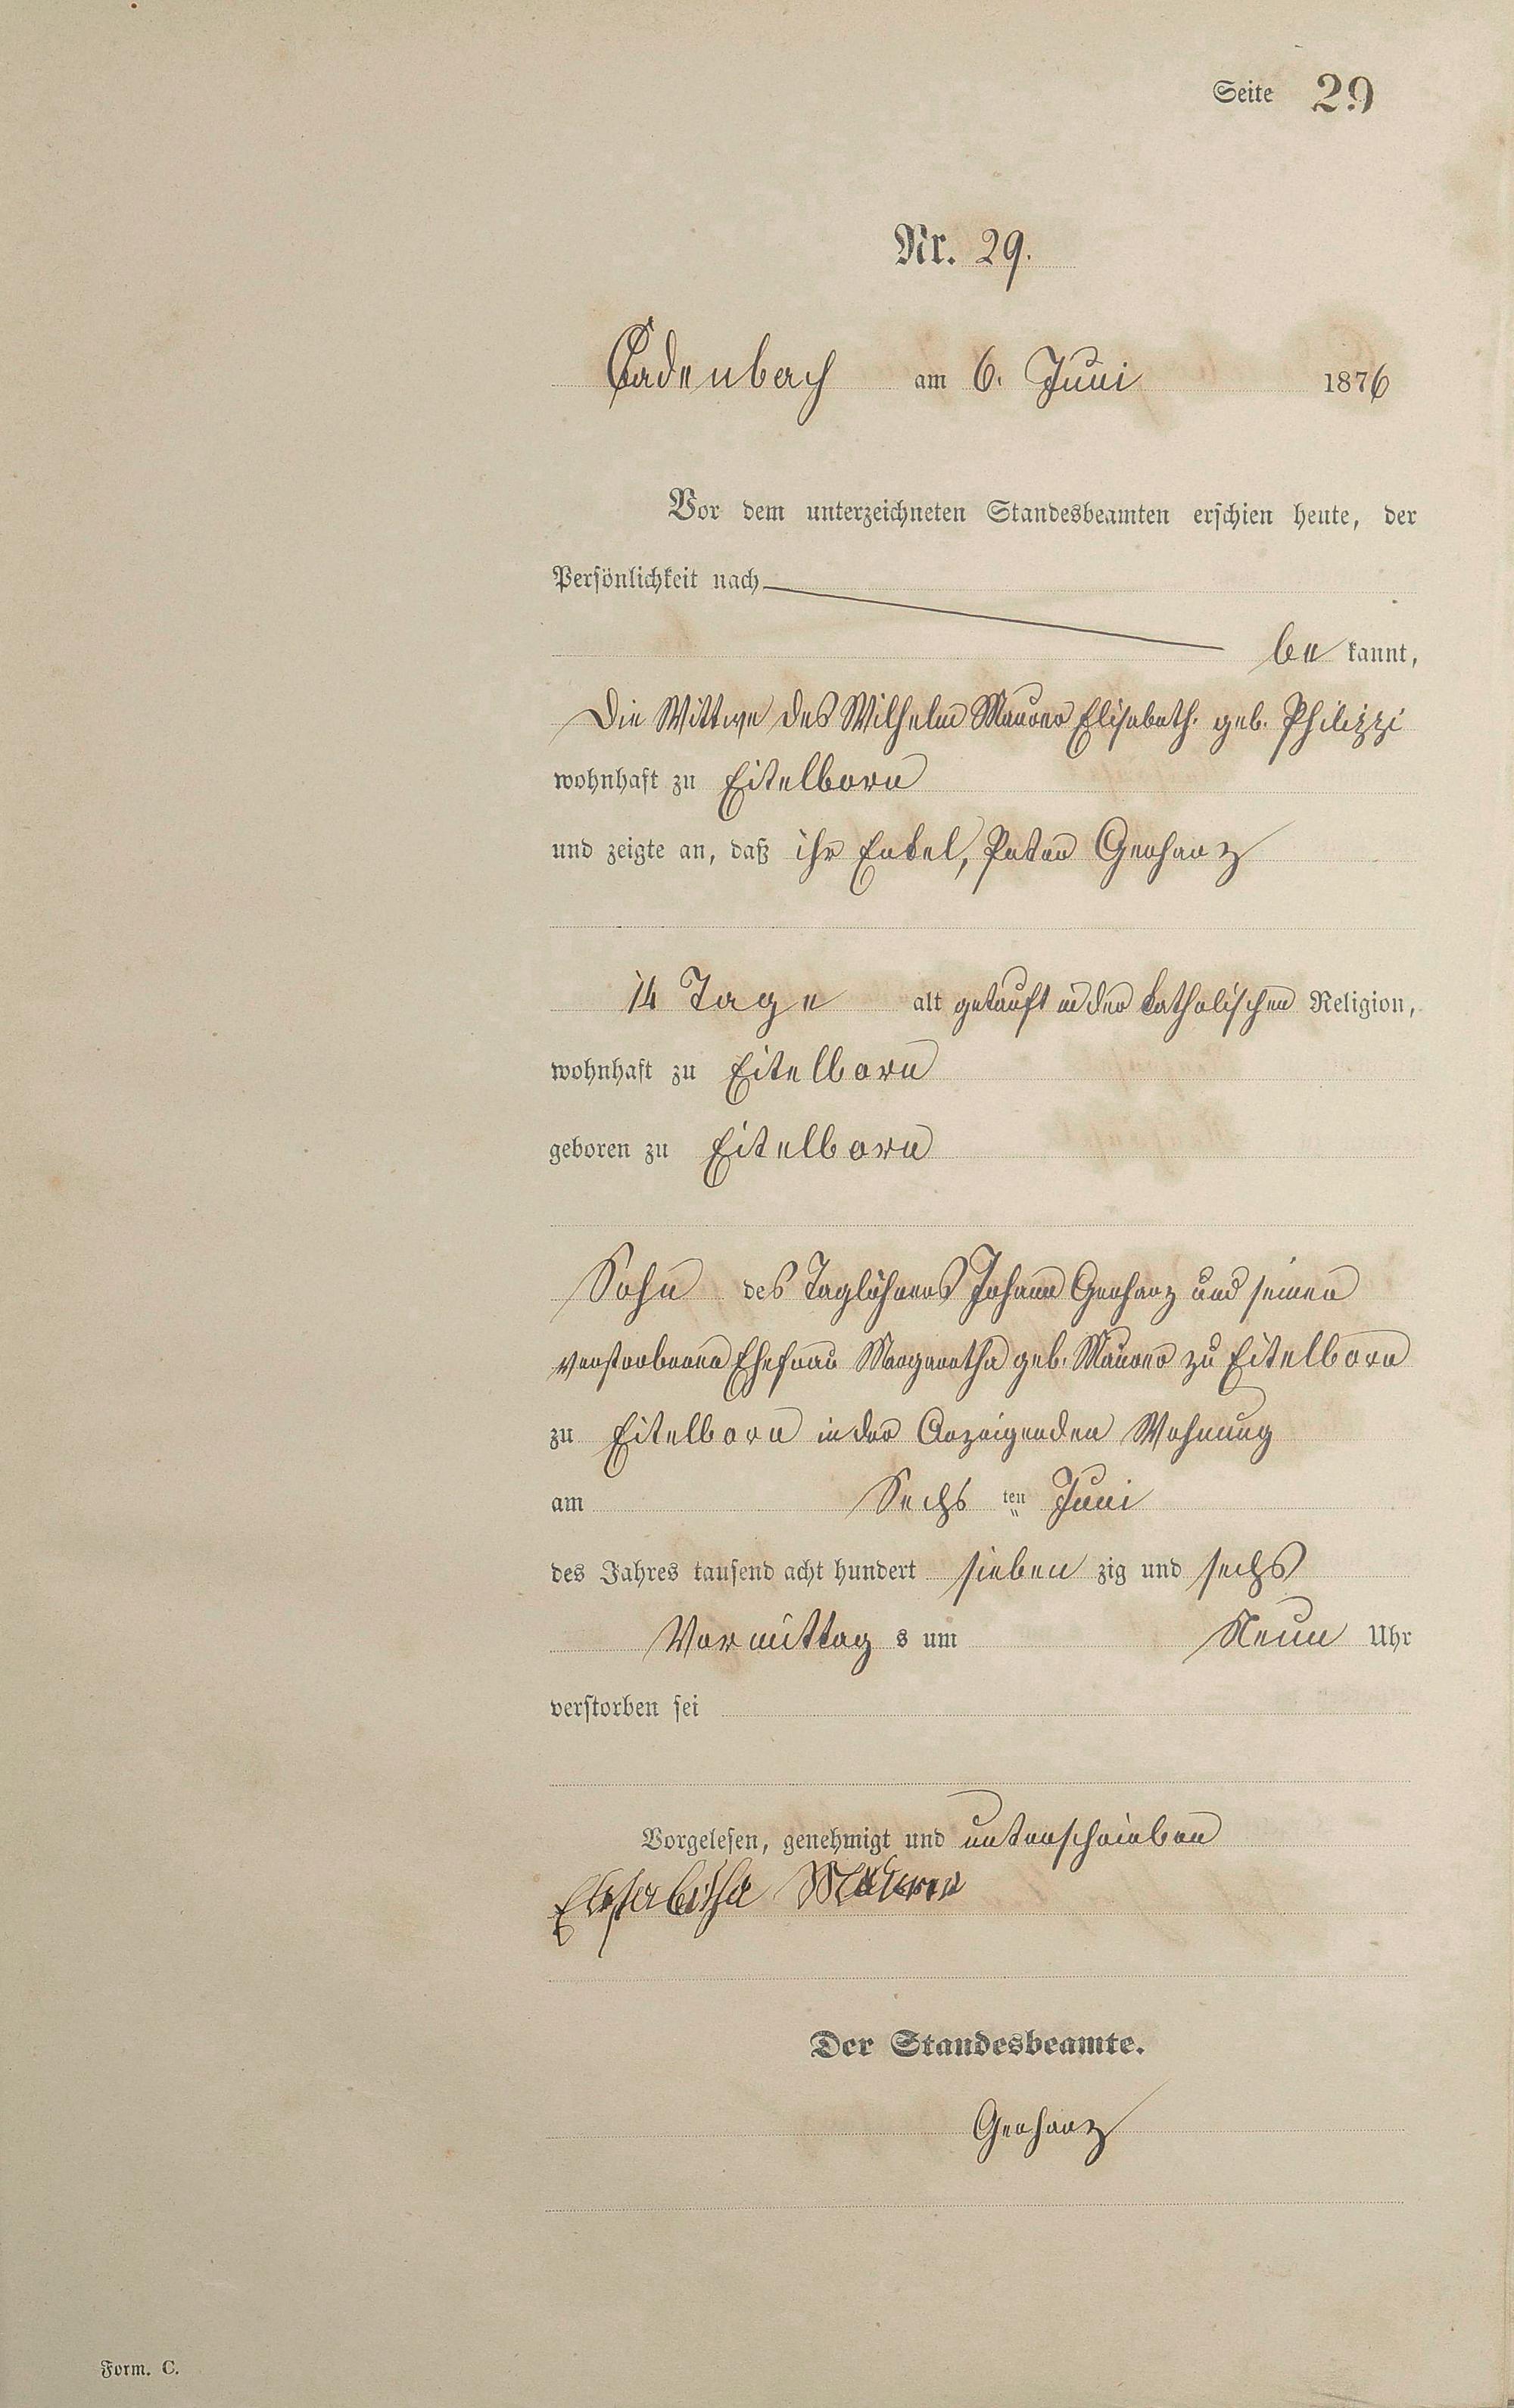 Seite 29
Nr. 29.
Cadenbach am 6. Juni 1876
Vor dem unterzeichneten Standesbeamten erschien heute, der
Persönlichkeit nach
be kannt,
Die Wittwe des Wilhelm Maurer Elisabeth. geb. Philippi
wohnhaft zu Eitelborn
und zeigte an, daß ihr Enkel, Peter Gerharz
14 Tage alt getauft in der katholischen Religion,
wohnhaft zu Eitelborn
geboren zu Eitelborn
Sohn des Taglöhners Johann Gerharz und seiner
verstorbenen Ehefrau Margaretha geb. Maurer zu Eitelborn
zu Eitelborn in der Anzeigenden Wohnung
am Sechs ten Juni
des Jahres tausend acht hundert sieben zig und sechs
Vormittag s um Neun Uhr
verstorben sei
Vorgelesen, genehmigt und unterschrieben
Elisabetha Maurer
Der Standesbeamte.
Gerharz
Form. C.